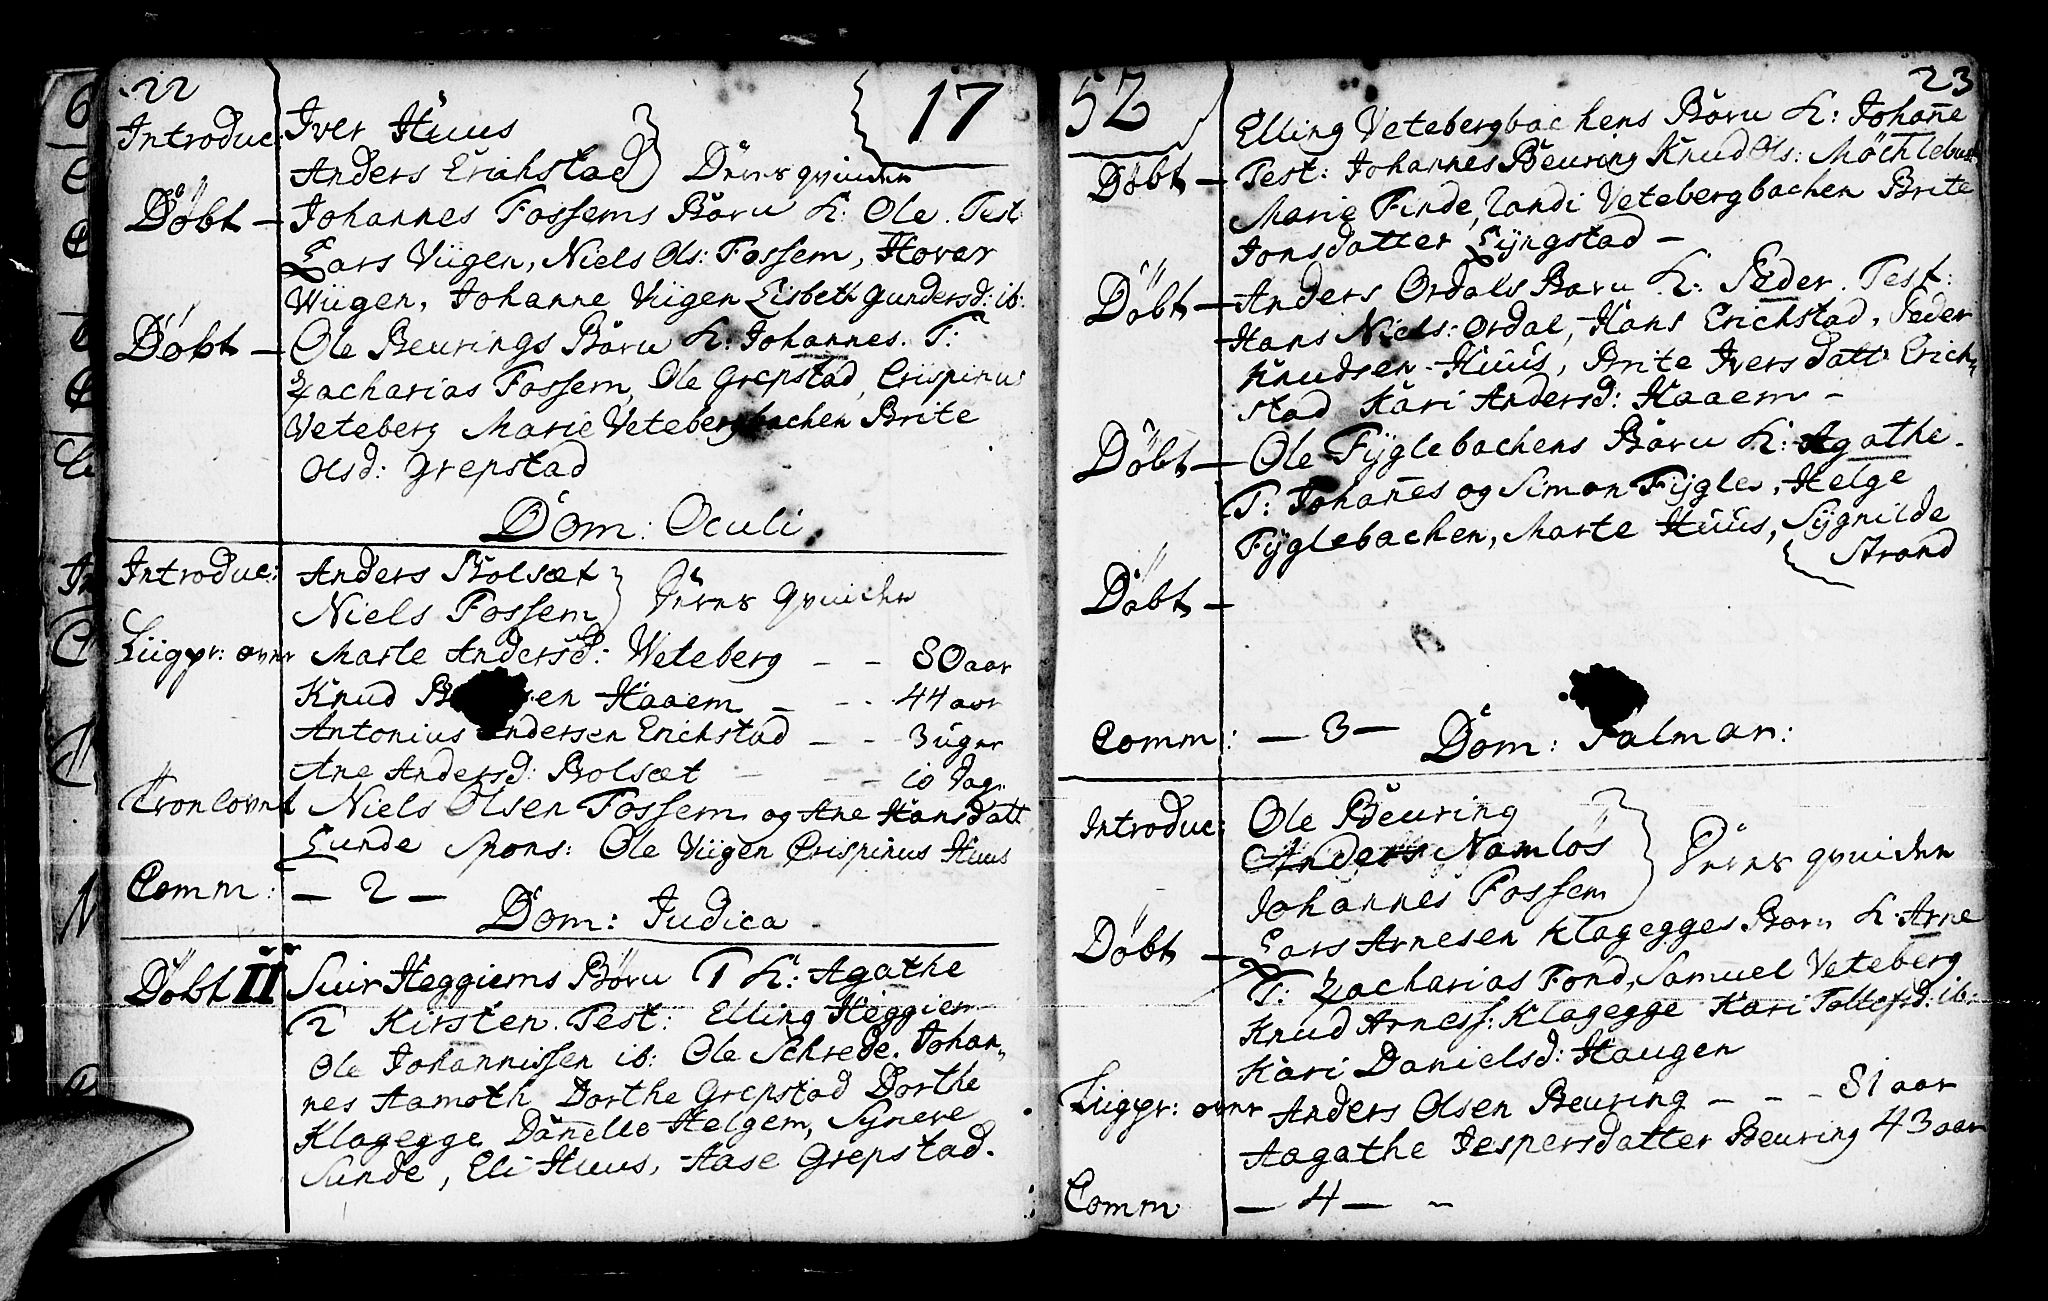 22
17
Introduc: Iver Huus
Anders Erichstad } Deres qvinder
Døbt – Johannes Fossems Barn K: Ole. Test
Lars Viigen, Niels Ols: Fossem, Hover
Wiigen, Johanne Viigen Lisbeth Gundersd: ib:
Døbt – Ole Beurings Barn K: Johannes. T:
Zacharias Fossem, Ole Grepstad, Crispinus
Veteberg Marie Vetebergbachen Brite
Olsd: Grepstad
Dom: Oculi
Introduc: Anders Bolsæt
Niels Fossem } Deres qvinder
Liigpr: over Marte Andersd: Weteberg – – 80 aar
Knud Haaem – – 44 aar
Antonius Andersen Erichstad – – 3 uger
Ane Andersd: Bolsæt – – – 10 Dag:
Troelovet Niels Olsen Fossem og Ane Hansdatt
Lunde Spons: Ole Viigen Crispinus Huus
Comm: – 2 –
Dom: Judica
Døbt II Siur Heggiems Børn 1 K: Agathe
2 Kirsten. Test: Elling Heggiem
Ole Johannissen ib: Ole Schrede. Johan-
nes Aamoth Dorthe Grepstad Dorthe
Klagegge Danelle Helgem, Syneve
Sunde, Eli Huus, Aase Grepstad.
52
23
Elling Vetebergbachens Barn K: Johañe
Døbt – Test: Johannes Beuring Knud Ols:
Marie Finde, Randi Vetebergbachen Brite
Jonsdatter Lyngstad –
Døbt – Anders Ordals Barn K: Peder. Test:
Hans Niels: Ordal, Hans Erichstad, Peder
Knudsen Huus, Brite Iversdatt: Erich-
stad Kari Andersd: Haaem –
Døbt – Ole Fyglebachens Barn K: Agathe.
T: Johañes og Simon Fygle, Helge
Fyglebachen, Marte Huus, Sygnilde
Strand
Døbt –
Comm: – 3 – Dom: Palmar:
Introduc: Ole Beuring
Anders Namløs
Johannes Fossem } Deres qvinder
Døbt – Lars Arnesen Klagegges Barn K: Arne
T: Zacharias Fond, Samuel Veteberg
Knud Arness: Klagegge Kari Tollefsd: ib:
Kari Danielsd: Haugen
Liigpr: over Anders Olsen Beuring – – – 81 aar
Aagathe Jespersdatter Beuring 43 aar
Comm – 4 – –